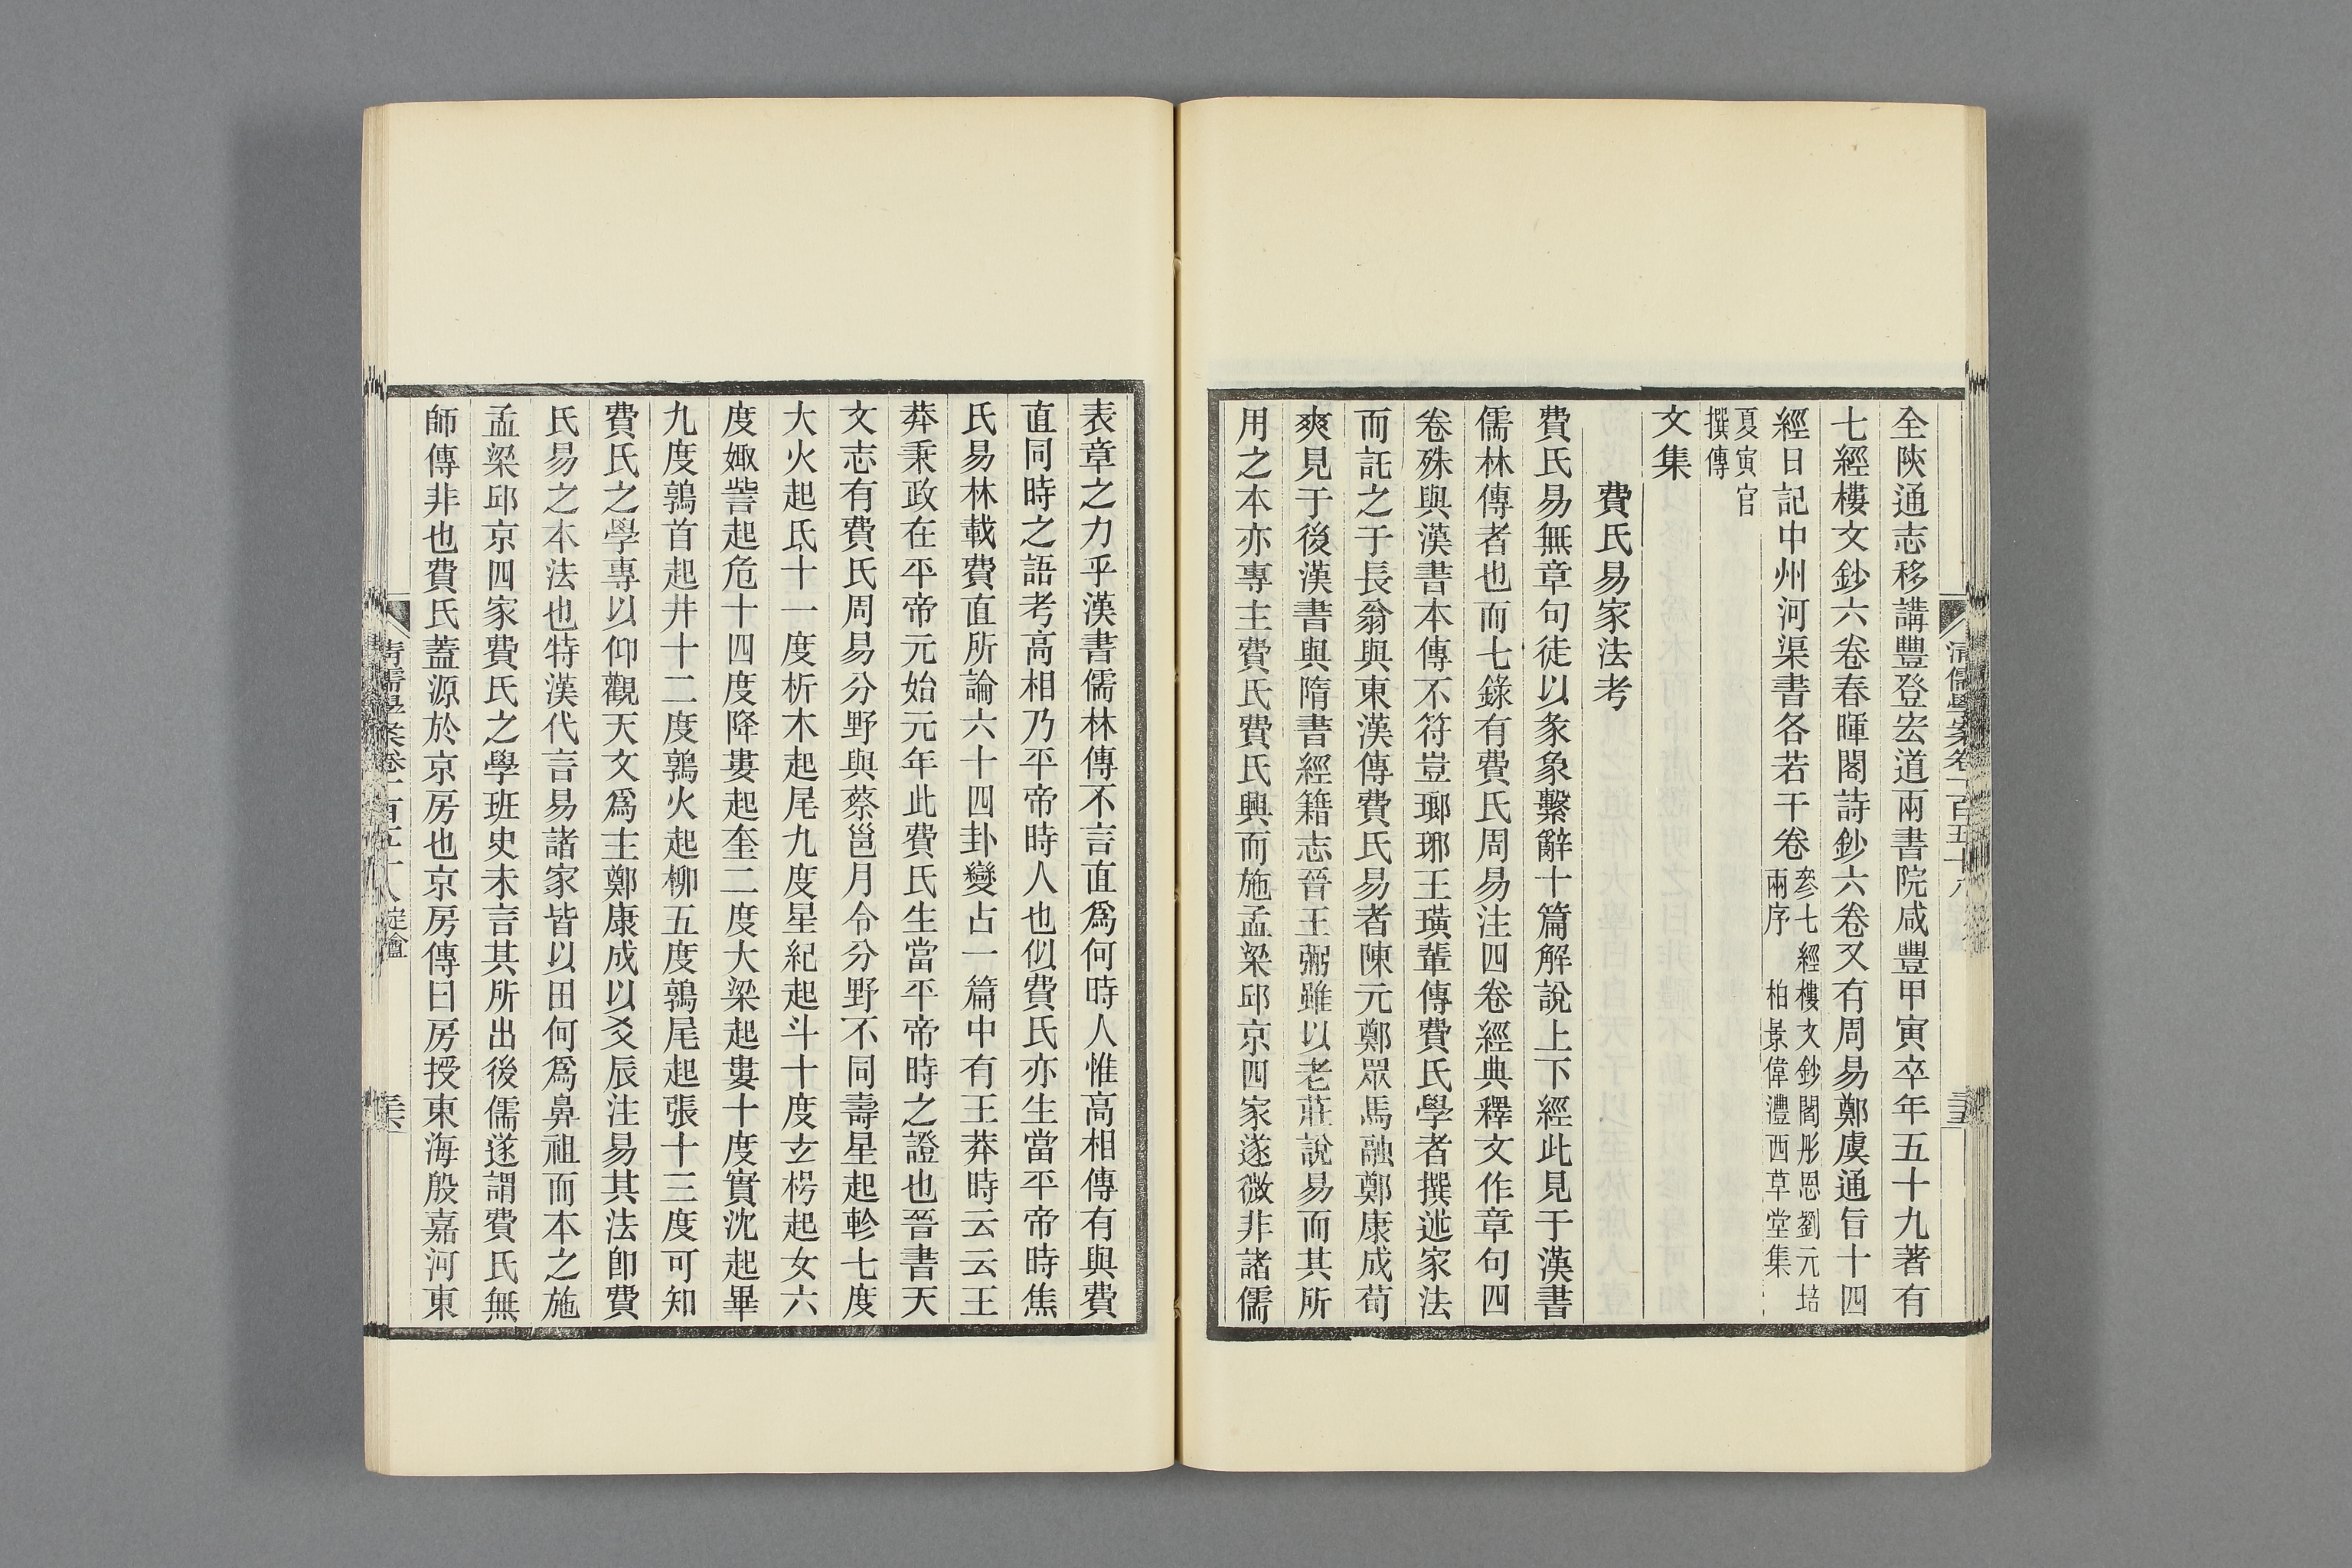 全陝通志移講豐登宏道兩書院咸豐甲寅卒年五十九著有
七經樓文鈔六卷春暉閣詩鈔六卷又有周易鄭虞通旨十四
經日記中州河渠書各若干卷
參七經樓文鈔閻彤恩劉元培
兩序 柏景偉灃西草堂集
夏寅官
撰傳
文集
費氏易家法考
費氏易無章句徒以彖象繫辭十篇解說上下經此見于漢書
儒林傳者也而七錄有費氏周易注四卷經典釋文作章句四
卷殊與漢書本傳不符豈瑯琊王璜輩傳費氏學者撰述家法
而託之于長翁與東漢傳費氏易者陳元鄭眾馬融鄭康成荀
爽見于後漢書與隋書經籍志晉王弼雖以老莊說易而其所
用之本亦專主費氏費氏興而施孟梁邱京四家遂微非諸儒
清儒學案卷一百五十八
表章之力乎漢書儒林傳不言直爲何時人惟高相傳有與費
直同時之語考高相乃平帝時人也似費氏亦生當平帝時焦
氏易林載費直所論六十四卦變占一篇中有王莽時云云王
莽秉政在平帝元始元年此費氏生當平帝時之證也晉書天
文志有費氏周易分野與蔡邕月令分野不同壽星起軫七度
大火起氐十一度析木起尾九度星紀起斗十度玄枵起女六
度娵訾起危十四度降婁起奎二度大梁起婁十度實沈起畢
九度鶉首起井十二度鶉火起柳五度鶉尾起張十三度可知
費氏之學專以仰觀天文爲主鄭康成以爻辰注易其法卽費
氏易之本法也特漢代言易諸家皆以田何爲鼻祖而本之施
孟梁邱京四家費氏之學班史未言其所出後儒遂謂費氏無
師傳非也費氏蓋源於京房也京房傳曰房授東海殷嘉河東
清儒學案卷一百五十八